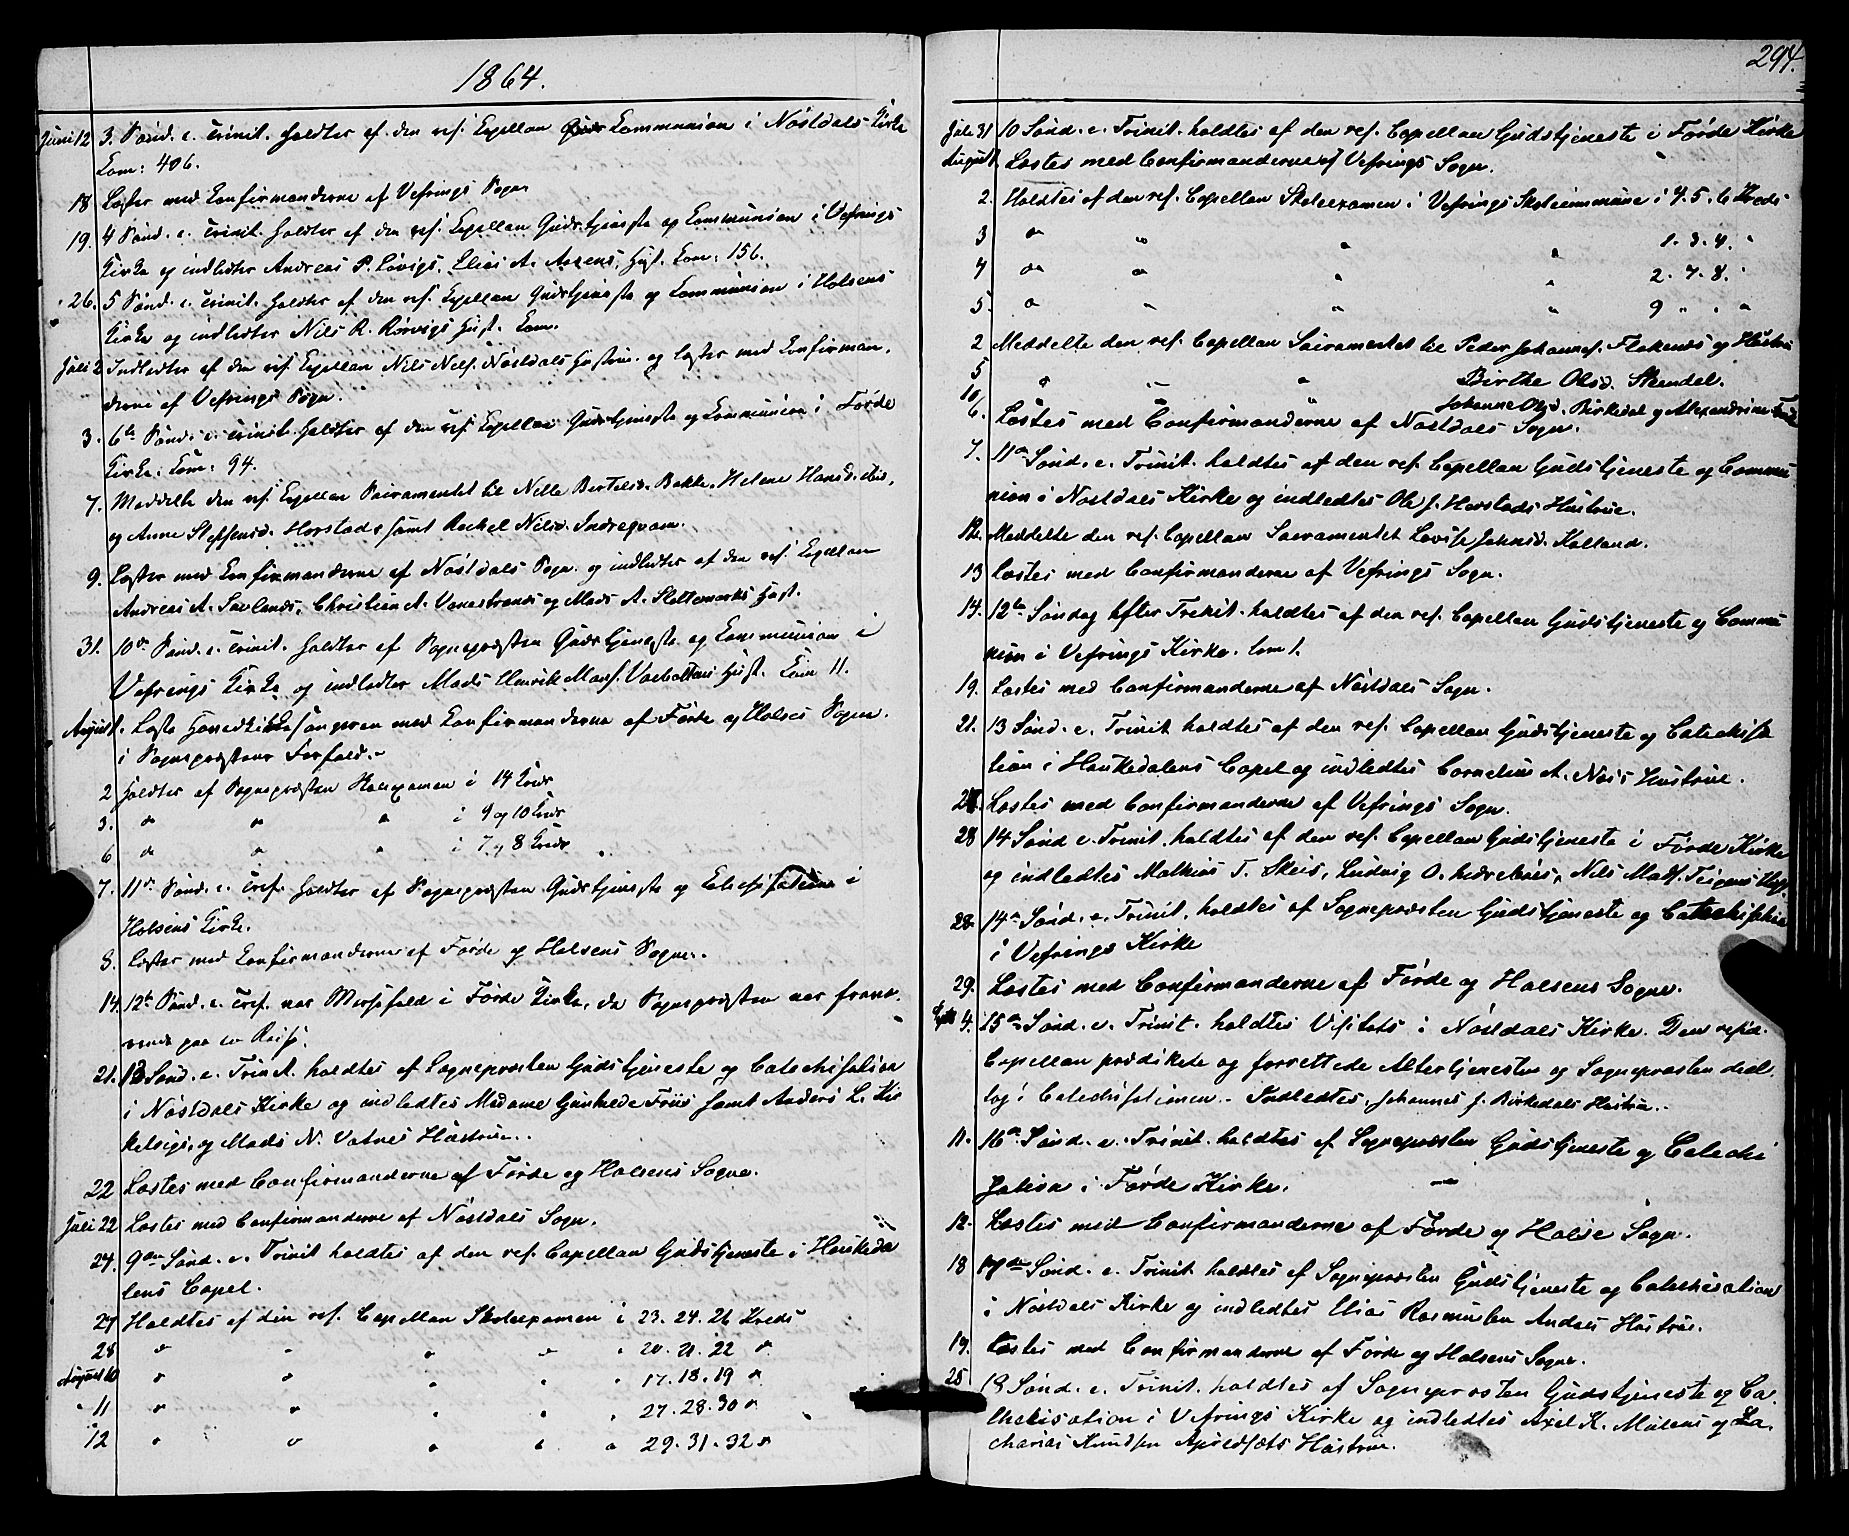 1864.
Juni 12 3. Sönd. e. Trinit. holdtes af den res. Capellan Communion i Nöstdals Kirke
Com: 406.
18 Læstes med Confirmanderne af Vefrings Sogn
19. 4 Sönd. e. Trinit. holdtes af den res. Capellan Gudstjeneste og Communion i Vefrings
Kirke og indledtes Andreas P. Lövigs, Elias A. Aasens, Hust. Com: 156.
26. 5 Sönd. e. Trinit. holdtes af den res. Capellan Gudstjeneste og Communion i Holsens
Kirke og indledtes Nils R. Rörvigs Hust. Com.
Juli 2 Indledtes af den res. Capellan Nils Nels. Nöstdals Hustru og læstes med Confirman-
derne af Vefrings Sogn.
3. 6te Sönd. e. Trinit. holdtes af den res. Capellan Gudstjeneste og Communion i Förde
Kirke: Com: 94.
7. Meddelte den res. Capellan Sacramentet til Nille Bertelsd. Bakke, Helene Hansd.
og Anne Steffensd. Horstads samt Rachel Nilsd. Indreqvam.
9. Læstes med Confirmanderne af Nöstdals Sogn og indledtes af den res. Capellan
Andreas A. Savlands, Christian A. Vonestrands og Mads A. Slettemarks Hust.
31. 10de Sönd. e. Trinit. holdtes af Sognepræsten Gudstjeneste og Communion i
Vefrings Kirke og indledtes Mads Henrik Mons. Hust. Com 11.
August. Læste Hovedkirkesangeren med Confirmanderne af Förde og Holses Sogne.
i Sognepræstens Forfald.-
2 Holdtes af Sognepræsten Skoleexamen i 14 Kreds
3. " " " i 9 og 10 Kreds
6 " " " i 7 og 8 Kreds
7. 11te Sönd. e. Tref. holdtes af Sognepræsten Gudstjeneste og Catechisation i
Holsens Kirke.
8. Læstes med Confirmanderne af Förde og Holsens Sogne.
14. 12te Sönd. e. Tref. var Messefald i Förde Kirke, da Sognepræsten var fravæ-
rende paa en Reise.
21. 13 Sönd. e. Trinit. holdtes af Sognepræsten Gudstjeneste og Catechisation
i Nöstdals Kirke og indledtes Madame Gunhilde Friis samt Anders L. Kir
kelvigs, og Mads N. Vatnes Hustrue.
22 Læstes med Confirmanderne af Förde og Holsens Sogne.
Juli 22 Læstes med Confirmanderne af Nöstdals Sogn.
24. 9de Sönd. e. Trinit holdtes af den res. Capellan Gudstjeneste i Houkeda
lens Capel.
27 Holdtes af den res. Capellan Skoleexamen i 23. 24. 26 Kreds
28 " " " " " 20. 21. 22 "
August 10 " " " " " 17. 18. 19 "
11 " " " " " 27. 28. 30 "
12 " " " " " 29. 31. 32 "
294.
Juli 31 10 Sönd. e. Trinit. holdtes af den res. Capellan Gudstjeneste i Förde Kirke
August 1. Læstes med Confirmanderne af Vefrings Sogn.
2. Holdtes af den res. Capellan Skoleexamen i Vefrings Skolecommune i 4. 5. 6 Kreds
3 " " " " 1. 3. 4. "
4 " " " " 2. 7. 8. "
5. " " " " 9 " " "
2 Meddelte den res. Capellan Sacramentet til Peder Johannes. Flokenes og Hustru
5 " " " Birthe Olsd. Skeudel.
10 Johanne Olsd. Birkedal og Alexandrine
6. Læstes med Confirmanderne af Nöstdals Sogn.
7. 11te Sönd. e. Trinit. holdtes af den res. Capellan Gudstjeneste og Commu
nion i Nöstdals Kirke og indledtes Ole J. Horstads Hustrue.
12. Meddelte den res. Capellan Sacramentet Lovise Johnsd. Kalland.
13 Læstes med Confirmanderne af Vefrings Sogn.
14. 12te Söndag efter Trinit. holdtes af den res. Capellan Gudstjeneste og Commu
nion i Vefrings Kirke. Com 1.
19. Læstes med Confirmanderne af Nöstdals Sogn.
21. 13 Sönd. e. Trinit holdtes af den res. Capellan Gudstjeneste og Catechisa
tion i Houkedalens Capel og indledtes Cornelius A. Næss Hustrue.
Læstes med Confirmanderne af Vefrings Sogn.
28 14 Sönd e. Trinit. holdtes af den res. Capellan Gudstjeneste i Förde Kirke
og indledtes Mathias T. Skeis, Ludvig O. Nils Mads. Teigens Hust.
28. 14de Sönd. e. Trinit. holdtes af Sognepræsten Gudstjeneste og Catechisation
i Vefrings Kirke
29. Læstes med Confirmanderne af Förde og Holsens Sogne.
Sept 4. 15de Sönd. e. Trinit. holdtes Visitats i Nöstdals Kirke. Den resid.
Capellan prædikede og forrettede Altertjenesten og Sognepræsten deel-
tog i Catechisationen. - Indledtes, Johannes J. Birkedals Hustru.-
11. 16de Sönd. e. Trinit. holdtes af Sognepræsten Gudstjeneste og Catechi
sation i Förde Kirke.
12. Læstes med Confirmanderne af Förde og Holse Sogn.
18 17de Sönd. e. Trinit holdtes af Sognepræsten Gudstjeneste og Catechisation
i Nöstdals Kirke og indledtes Elias Rasmussen Andals Hustrue.
19. Læstes med Confirmanderne af Förde og Holsens Sogne.
25 18 Sönd. e. Trinit. holdtes af Sognepræsten Gudstjeneste og Ca-
thechisation i Vefrings Kirke og indledtes Axel K. Mulens og Za-
charias Knudsen Hustrue.